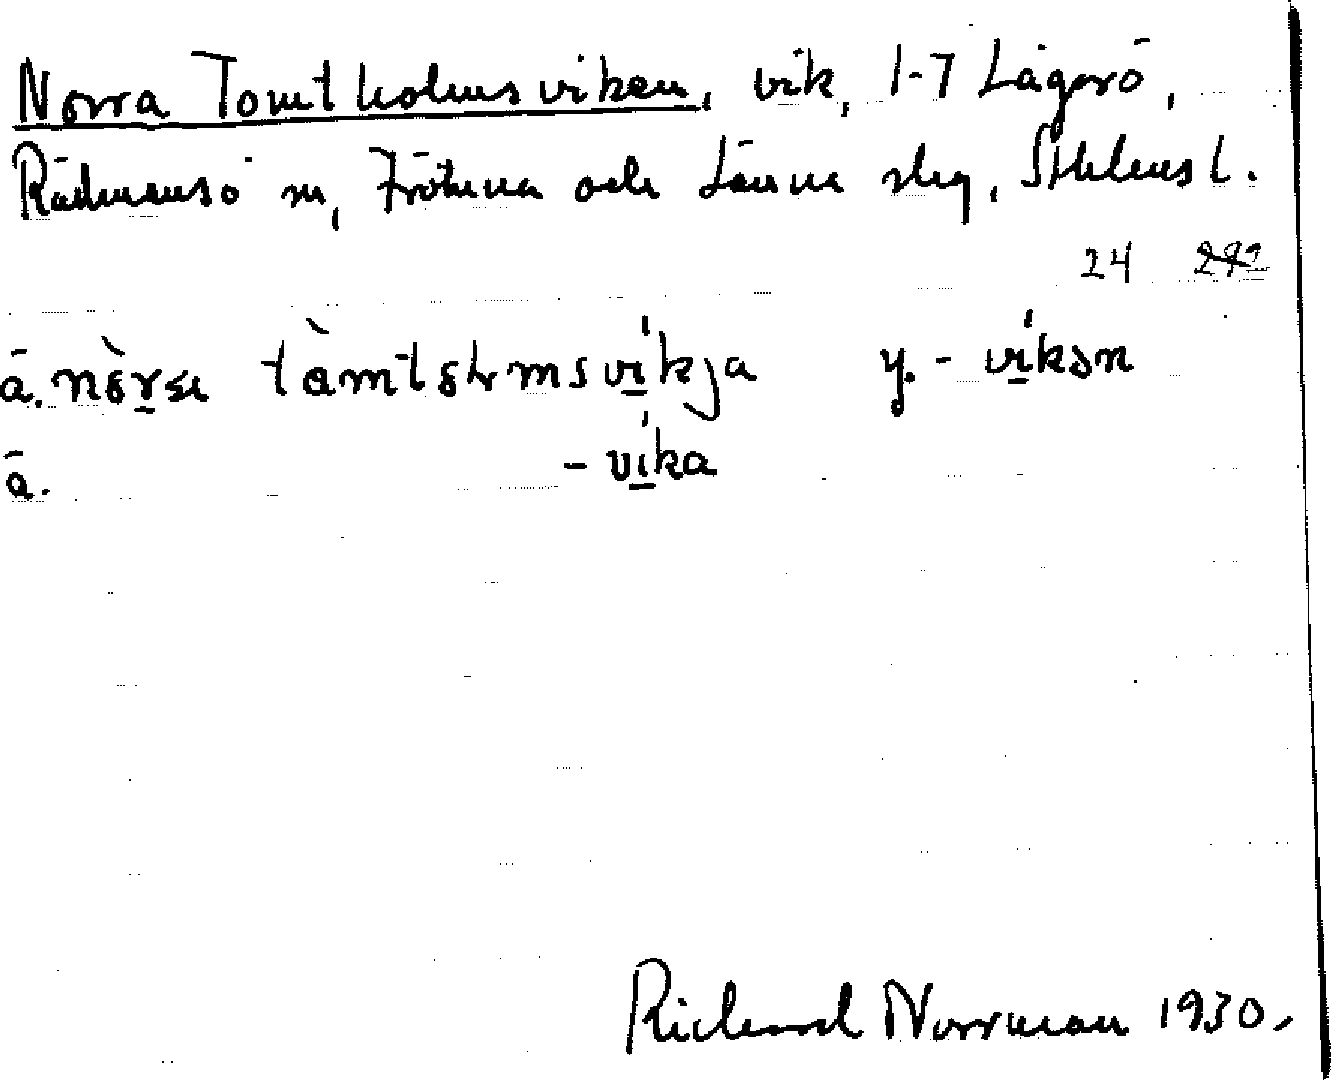 Norra Tomtholmsviken, vik, 1-7 Lågarö,
Rådmansö sn, Frötuna och Länna skg, Sthlms l.
24
ā. nòrse tàmtshmsvíkja y. - víkən
ā. - víka
Richard Norrman 1930.